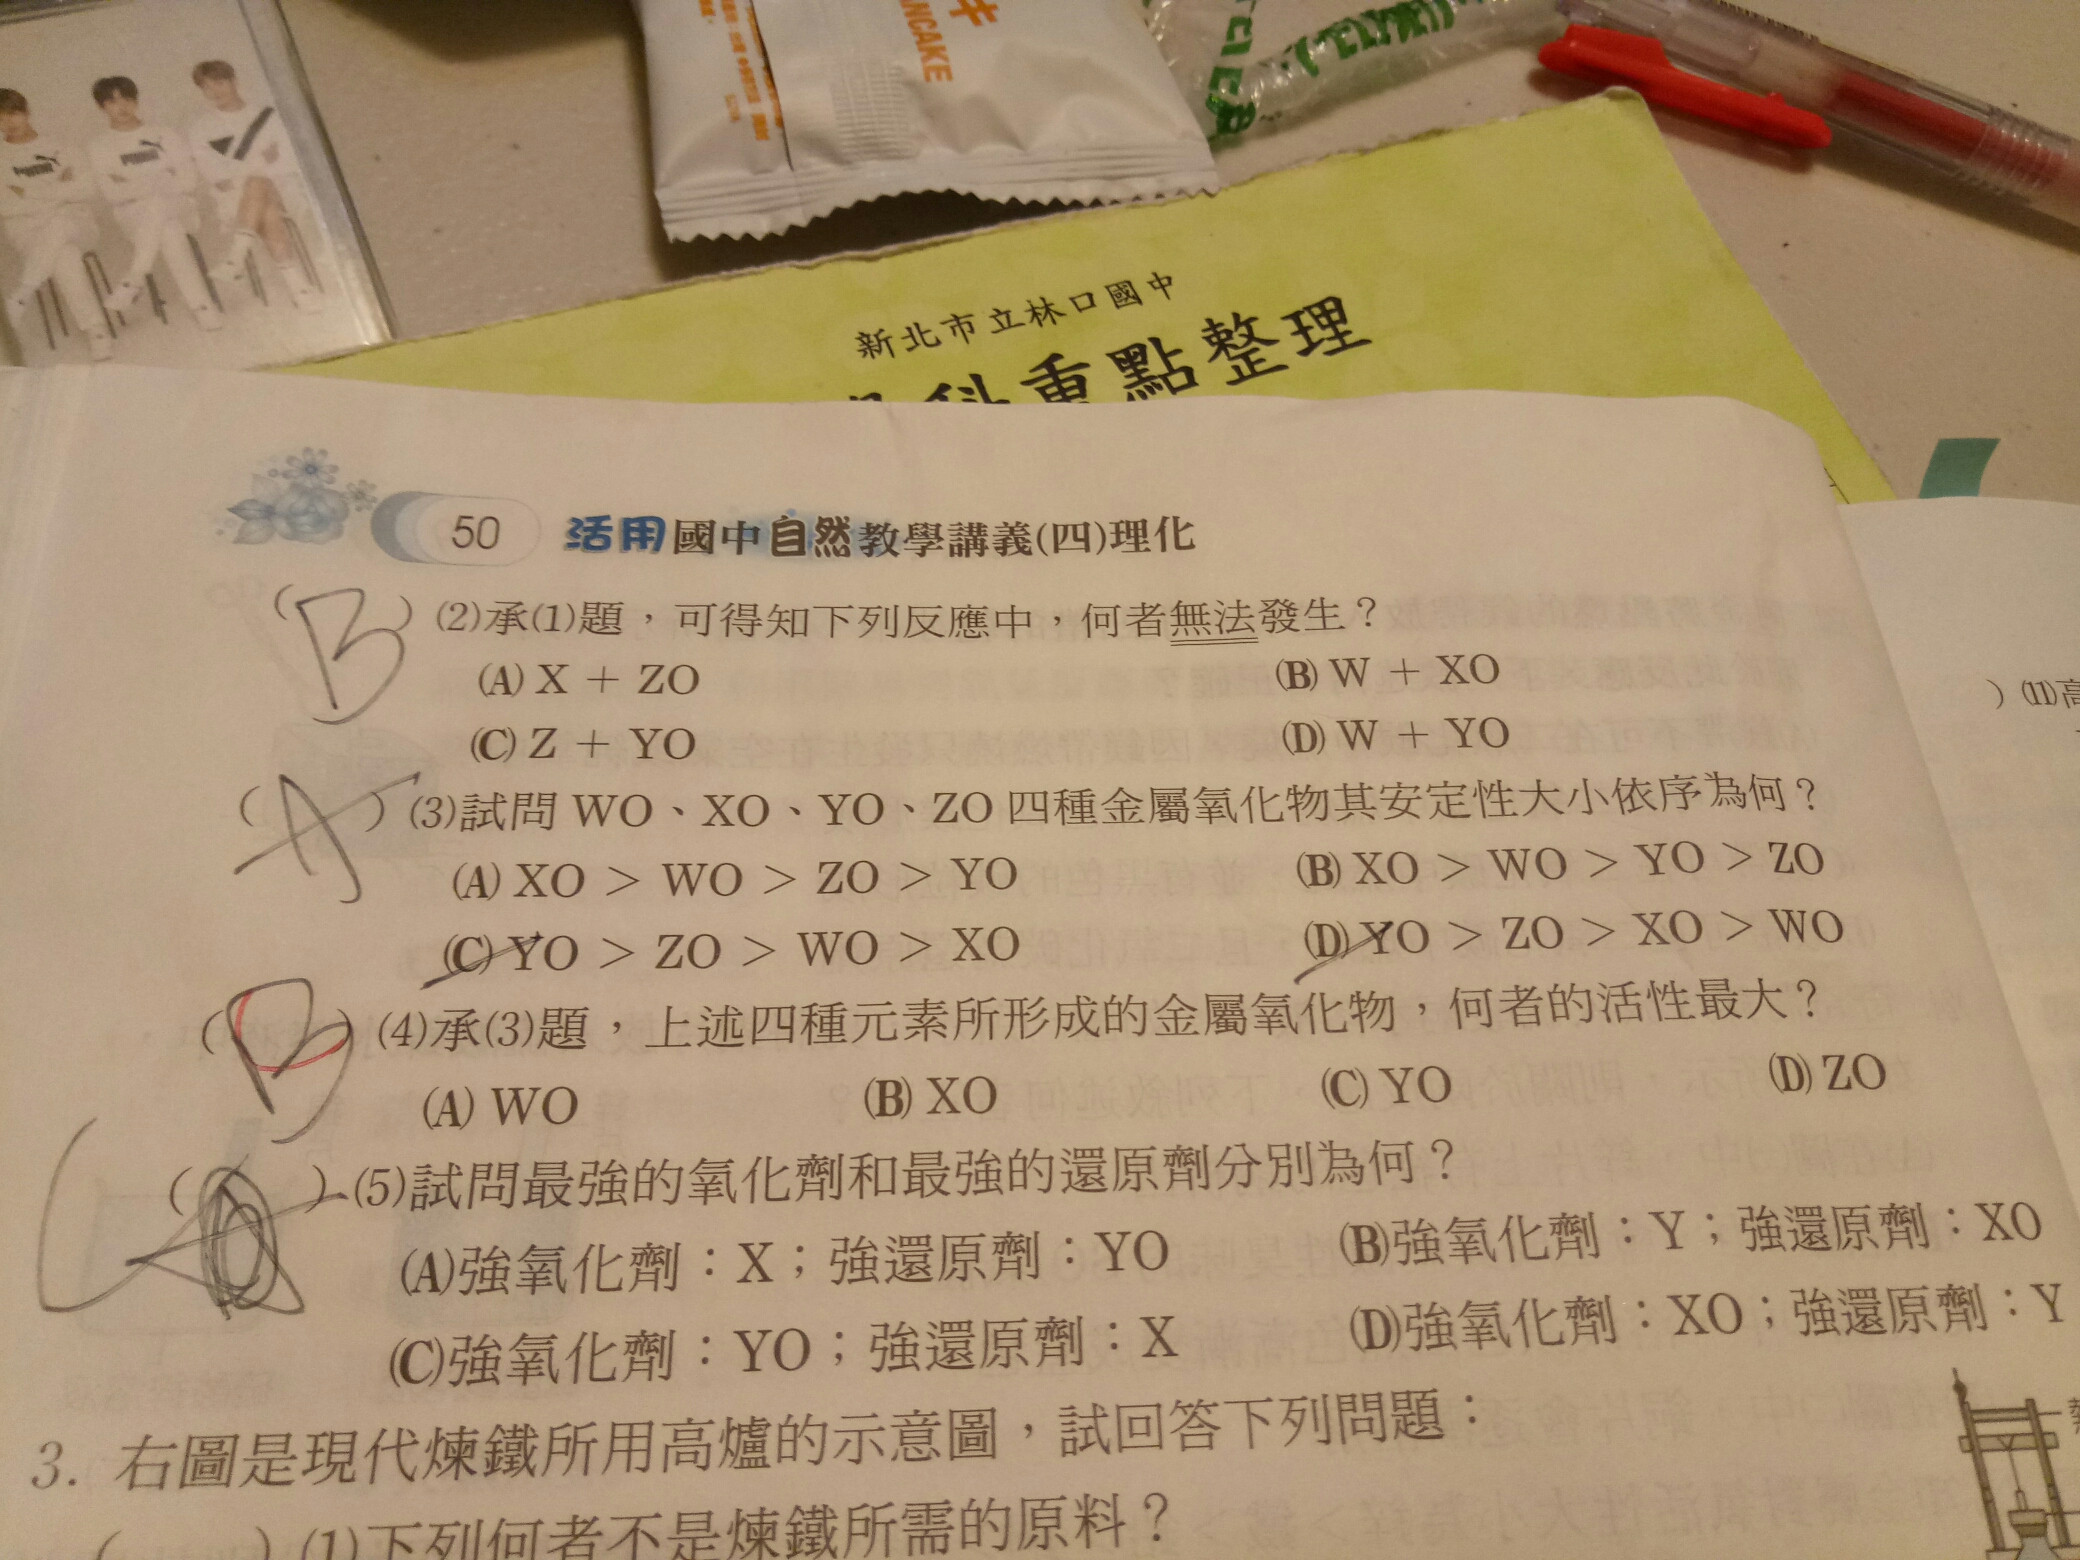 PANCAKE
新北市立林口國中
科重點整理
50 活用國中自然教學講義(四)理化
(B) (2)承(1)題，可得知下列反應中，何者無法發生？
(A) X + ZO (B) W + XO
(C) Z + YO (D) W + YO
(A) (3)試問 WO、XO、YO、ZO 四種金屬氧化物其安定性大小依序為何？
(A) XO > WO > ZO > YO (B) XO > WO > YO > ZO
(C) YO > ZO > WO > XO (D) YO > ZO > XO > WO
(B) (4)承(3)題，上述四種元素所形成的金屬氧化物，何者的活性最大？
(A) WO (B) XO (C) YO (D) ZO
( ) (5)試問最強的氧化劑和最強的還原劑分別為何？
(A)強氧化劑：X；強還原劑：YO (B)強氧化劑：Y；強還原劑：XO
(C)強氧化劑：YO；強還原劑：X (D)強氧化劑：XO；強還原劑：Y
3. 右圖是現代煉鐵所用高爐的示意圖，試回答下列問題：
( ) (1)下列何者不是煉鐵所需的原料？
) (11)高